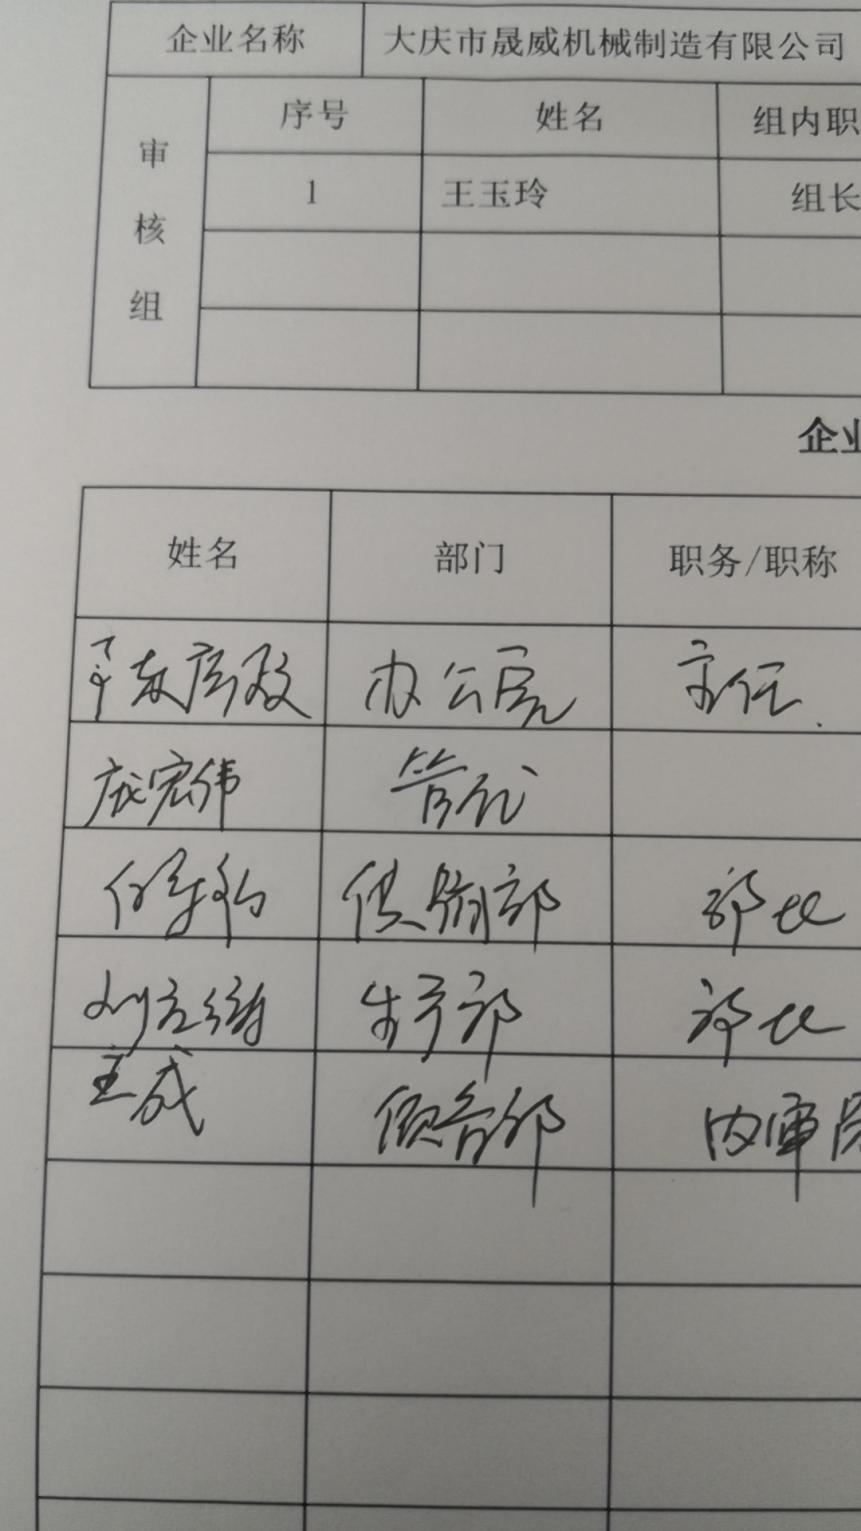 企业名称 大庆市晟威机械制造有限公司
审核组
序号 姓名 组内职
1 王玉玲 组长
企业
姓名 部门 职务/职称
办公室 主任
庞宏伟 管代
供销部 部长
生产部 部长
王成 质管部 内审员